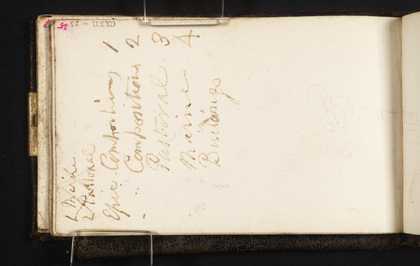 1 Marine
2 Pastoral
Epic Compositions 1
" Compositions 2
Pastoral 3
Marine 4
Buildings